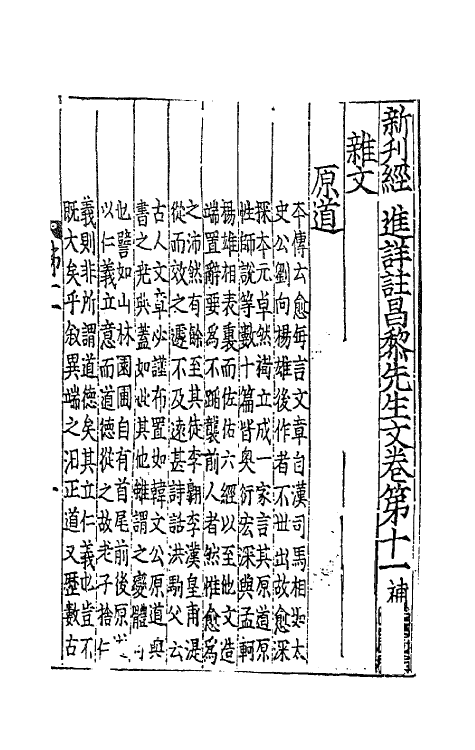 新刊經進詳註昌黎先生文卷第十一 補
雜文
原道
夲傳云愈每言文章自漢司馬相如太
史公劉向揚雄後作者不世出故愈深
探夲元卓然樹立成一家言其原道原
性師說等數十篇皆奥衍宏深與孟軻
揚雄相表裏而佐佑六經以至他文造
端置辭要為不蹈襲前人者然惟愈為
之沛然有餘至其徒李翺李漢皇甫湜
從而效之遽不及遠甚詩話洪駒父云
古人文章必謹布置如韓文公原道與
書之尭典蓋如此其他雖謂之變體
也譬如山林園圃自有首尾前後原
以仁義立意而道德從之故老子捨仁
義則非所謂道德矣其立仁義也豈不
既大矣乎叙異端之汨正道又歴數古